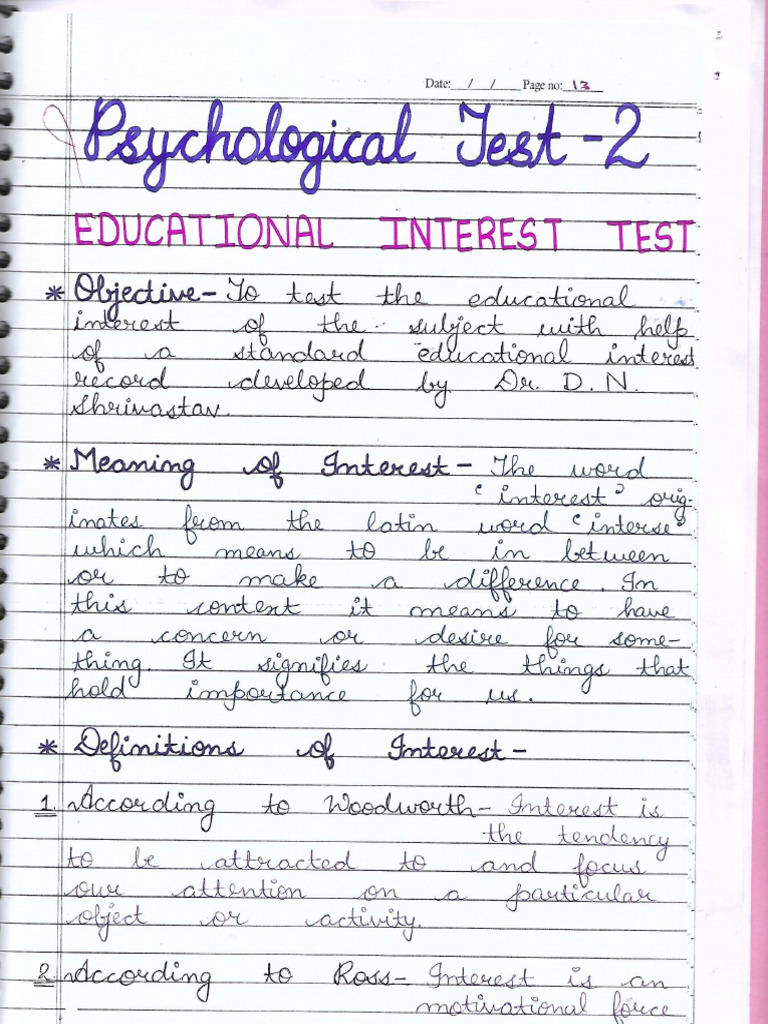 Date: / / Page no: 13
Psychological Test - 2
EDUCATIONAL INTEREST TEST
* Objective - To test the educational
interest of the subject with help
of a standard educational interest
record developed by Dr. D. N.
Shrivastav.
* Meaning of Interest - The word
'interest' orig-
inates from the latin word 'interse'
which means to be in between
or to make a difference. In
this context it means to have
a concern or desire for some-
thing. It signifies the things that
hold importance for us.
* Definitions of Interest -
1. According to Woodworth - Interest is
the tendency
to be attracted to and focus
our attention on a particular
object or activity.
2. According to Ross - Interest is an
motivational force